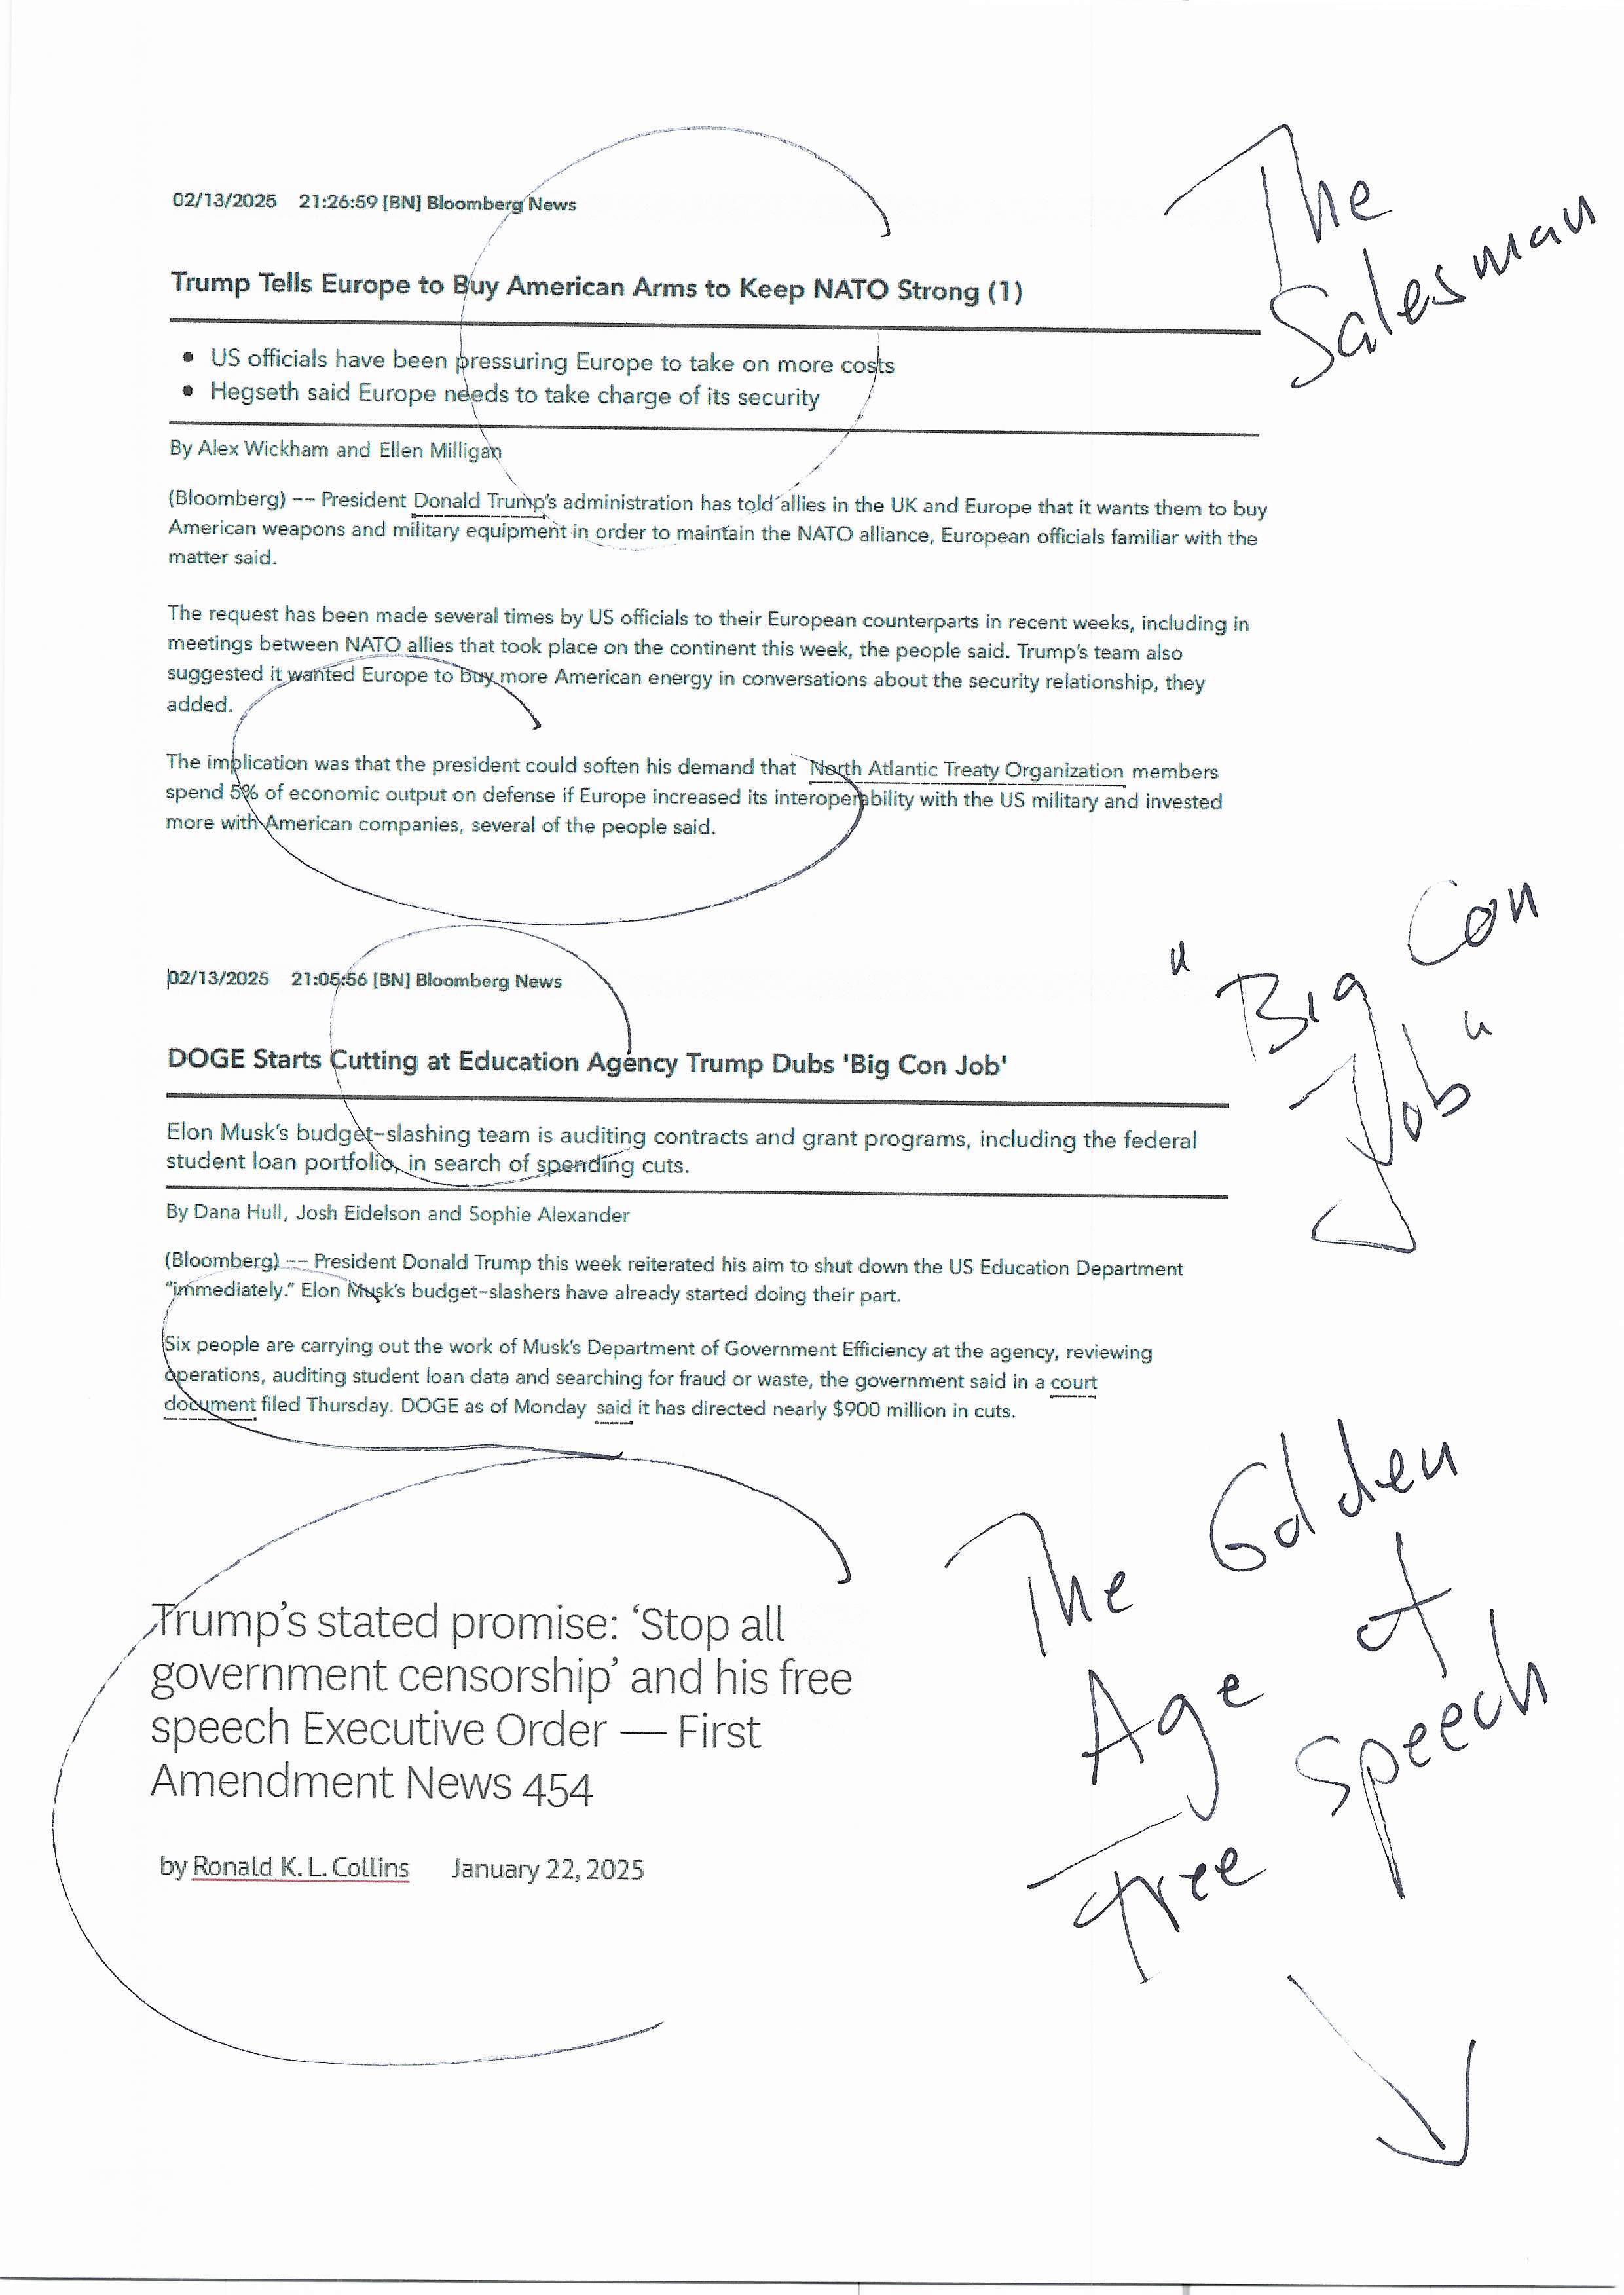 02/13/2025 21:26:59 [BN] Bloomberg News
The
Salesman
Trump Tells Europe to Buy American Arms to Keep NATO Strong (1)
• US officials have been pressuring Europe to take on more costs
• Hegseth said Europe needs to take charge of its security
By Alex Wickham and Ellen Milligan
(Bloomberg) -- President Donald Trump's administration has told allies in the UK and Europe that it wants them to buy
American weapons and military equipment in order to maintain the NATO alliance, European officials familiar with the
matter said.
The request has been made several times by US officials to their European counterparts in recent weeks, including in
meetings between NATO allies that took place on the continent this week, the people said. Trump's team also
suggested it wanted Europe to buy more American energy in conversations about the security relationship, they
added.
The implication was that the president could soften his demand that North Atlantic Treaty Organization members
spend 5% of economic output on defense if Europe increased its interoperability with the US military and invested
more with American companies, several of the people said.
02/13/2025 21:05:56 [BN] Bloomberg News
"Big Con
Job"
DOGE Starts Cutting at Education Agency Trump Dubs 'Big Con Job'
Elon Musk's budget-slashing team is auditing contracts and grant programs, including the federal
student loan portfolio, in search of spending cuts.
By Dana Hull, Josh Eidelson and Sophie Alexander
(Bloomberg) -- President Donald Trump this week reiterated his aim to shut down the US Education Department
“immediately.” Elon Musk's budget-slashers have already started doing their part.
Six people are carrying out the work of Musk's Department of Government Efficiency at the agency, reviewing
operations, auditing student loan data and searching for fraud or waste, the government said in a court
document filed Thursday. DOGE as of Monday said it has directed nearly $900 million in cuts.
The Golden
Age of
Free Speech
Trump's stated promise: ‘Stop all
government censorship’ and his free
speech Executive Order — First
Amendment News 454
by Ronald K. L. Collins January 22, 2025